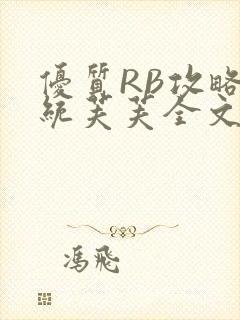 優質RB攻略
統芙芙全文
馮飛